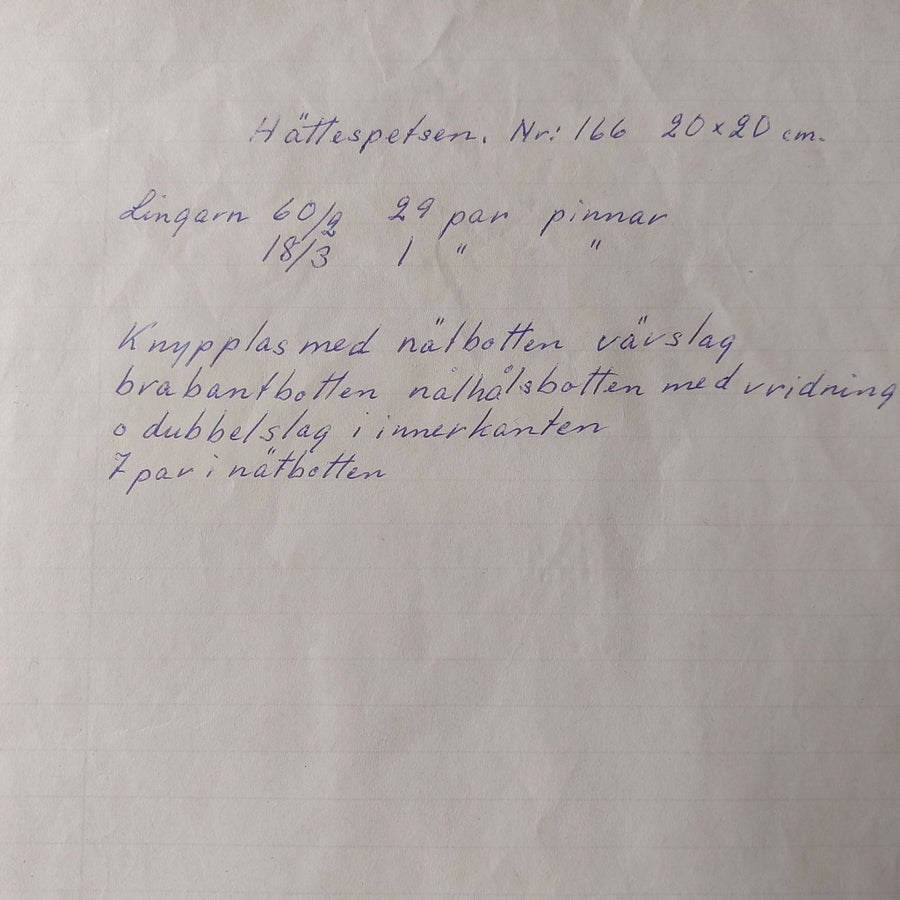 Hättespetsen. Nr: 166 20×20 cm.
Lingarn 60/2 29 par pinnar
18/3 1 " "
Knypplas med nätbotten vävslag
brabantbotten nålhålsbotten med vridning
o dubbelslag i innerkanten
7 par i nätbotten